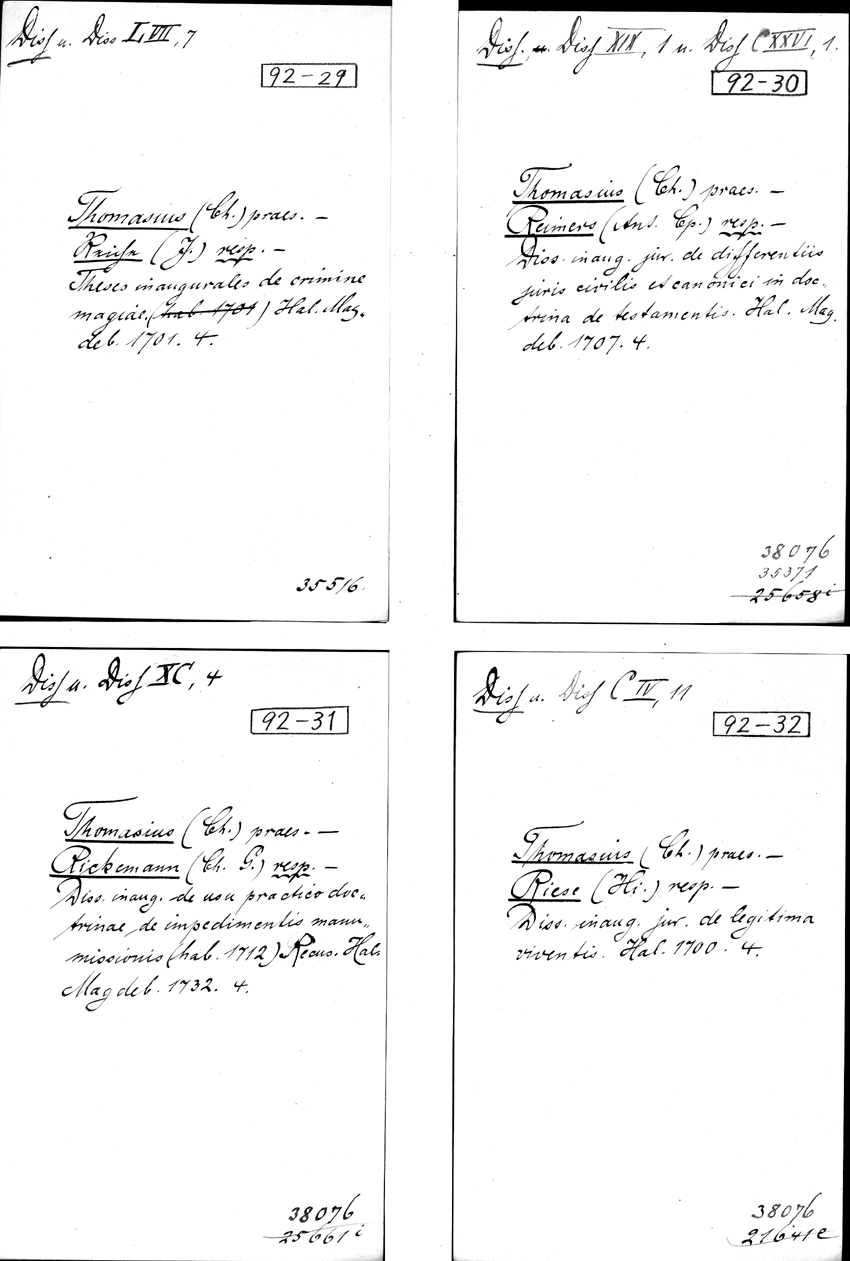 Diss u. Diss LVII, 7
92-29
Thomasius (Ch.) praes. —
Reiche (J.) resp. —
Theses inaugurales de crimine
magiae. (hab. 1701) Hal. Mag-
deb. 1701. 4.
35516.
Diss. u. Diss XIX, 1 u. Diss CXXVI, 1.
92-30
Thomasius (Ch.) praes. —
Reimers (Ant. Cp.) resp. —
Diss. inaug. jur. de differentiis
juris civilis et canonici in doc-
trina de testamentis. Hal. Mag.
deb. 1707. 4.
38076
35371
25658i
Diss u. Diss XC, 4
92-31
Thomasius (Ch.) praes. —
Rickemann (Ch. G.) resp. —
Diss. inaug. de usu practico doc-
trinae de impedimentis manu-
missionis (hab. 1712) Recus. Hal.
Magdeb. 1732. 4.
38076
25661i
Diss u. Diss CIV, 11
92-32
Thomasius (Ch.) praes. —
Riese (Hi.) resp. —
Diss. inaug. jur. de legitima
viventis. Hal. 1700. 4.
38076
21641e